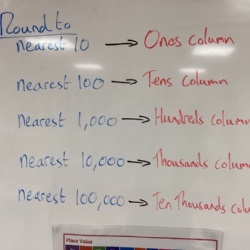 Round to
nearest 10 → Ones column
nearest 100 → Tens column
nearest 1,000 → Hundreds column
nearest 10,000 → Thousands colum
nearest 100,000 → Ten Thousands colu
Place Value